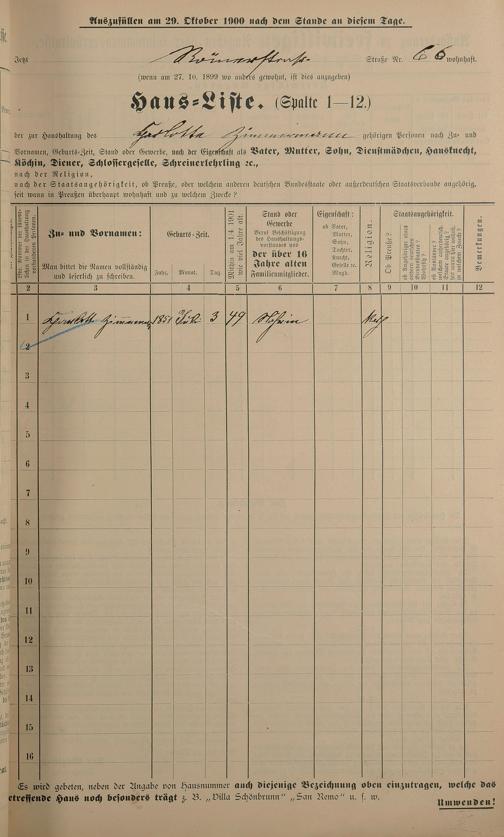 Auszufüllen am 29. Oktober 1900 nach dem Stande an diesem Tage.
Jetzt Römerstraße Straße Nr. 66 wohnhaft.
(wenn am 27. 10. 1899 wo anders gewohnt, ist dies anzugeben)
Haus-Liste. (Spalte 1—12.)
der zur Haushaltung des Zimmermann gehörigen Personen nach Zu- und
Vornamen, Geburts-Zeit, Stand oder Gewerbe, nach der Eigenschaft als Vater, Mutter, Sohn, Dienstmädchen, Hausknecht,
Köchin, Diener, Schlossergeselle, Schreinerlehrling ꝛc.,
nach der Religion,
nach der Staatsangehörigkeit, ob Preuße, oder welchem anderen deutschen Bundesstaate oder außerdeutschen Staatsverbande angehörig,
seit wann in Preußen überhaupt wohnhaft und zu welchem Zwecke?
Zu- und Vornamen:
Man bittet die Namen vollständig
und leserlich zu schreiben.
Geburts-Zeit.
Jahr. Monat. Tag.
Mithin am 1.4 1901
wie viel Jahre alt.
Stand oder
Gewerbe
Beruf Beschäftigung
des Haushaltungs-
vorstandes und
der über 16
Jahre alten
Familienmitglieder.
Eigenschaft:
ob Vater,
Mutter,
Sohn,
Tochter,
Knecht,
Geselle ꝛc.
Magd.
Religion.
Staatsangehörigkeit.
Ob Preuße?
Bemerkungen.
2 3 4 5 6 7 8 9 10 11 12
1 Zimmermann 1851 3 49
2
3
4
5
6
7
8
9
10
11
12
13
14
15
16
Es wird gebeten, neben der Angabe von Hausnummer auch diejenige Bezeichnung oben einzutragen, welche das
betreffende Haus noch besonders trägt z. B. „Villa Schönbrunn" „San Remo" u. s. w.
Umwenden!